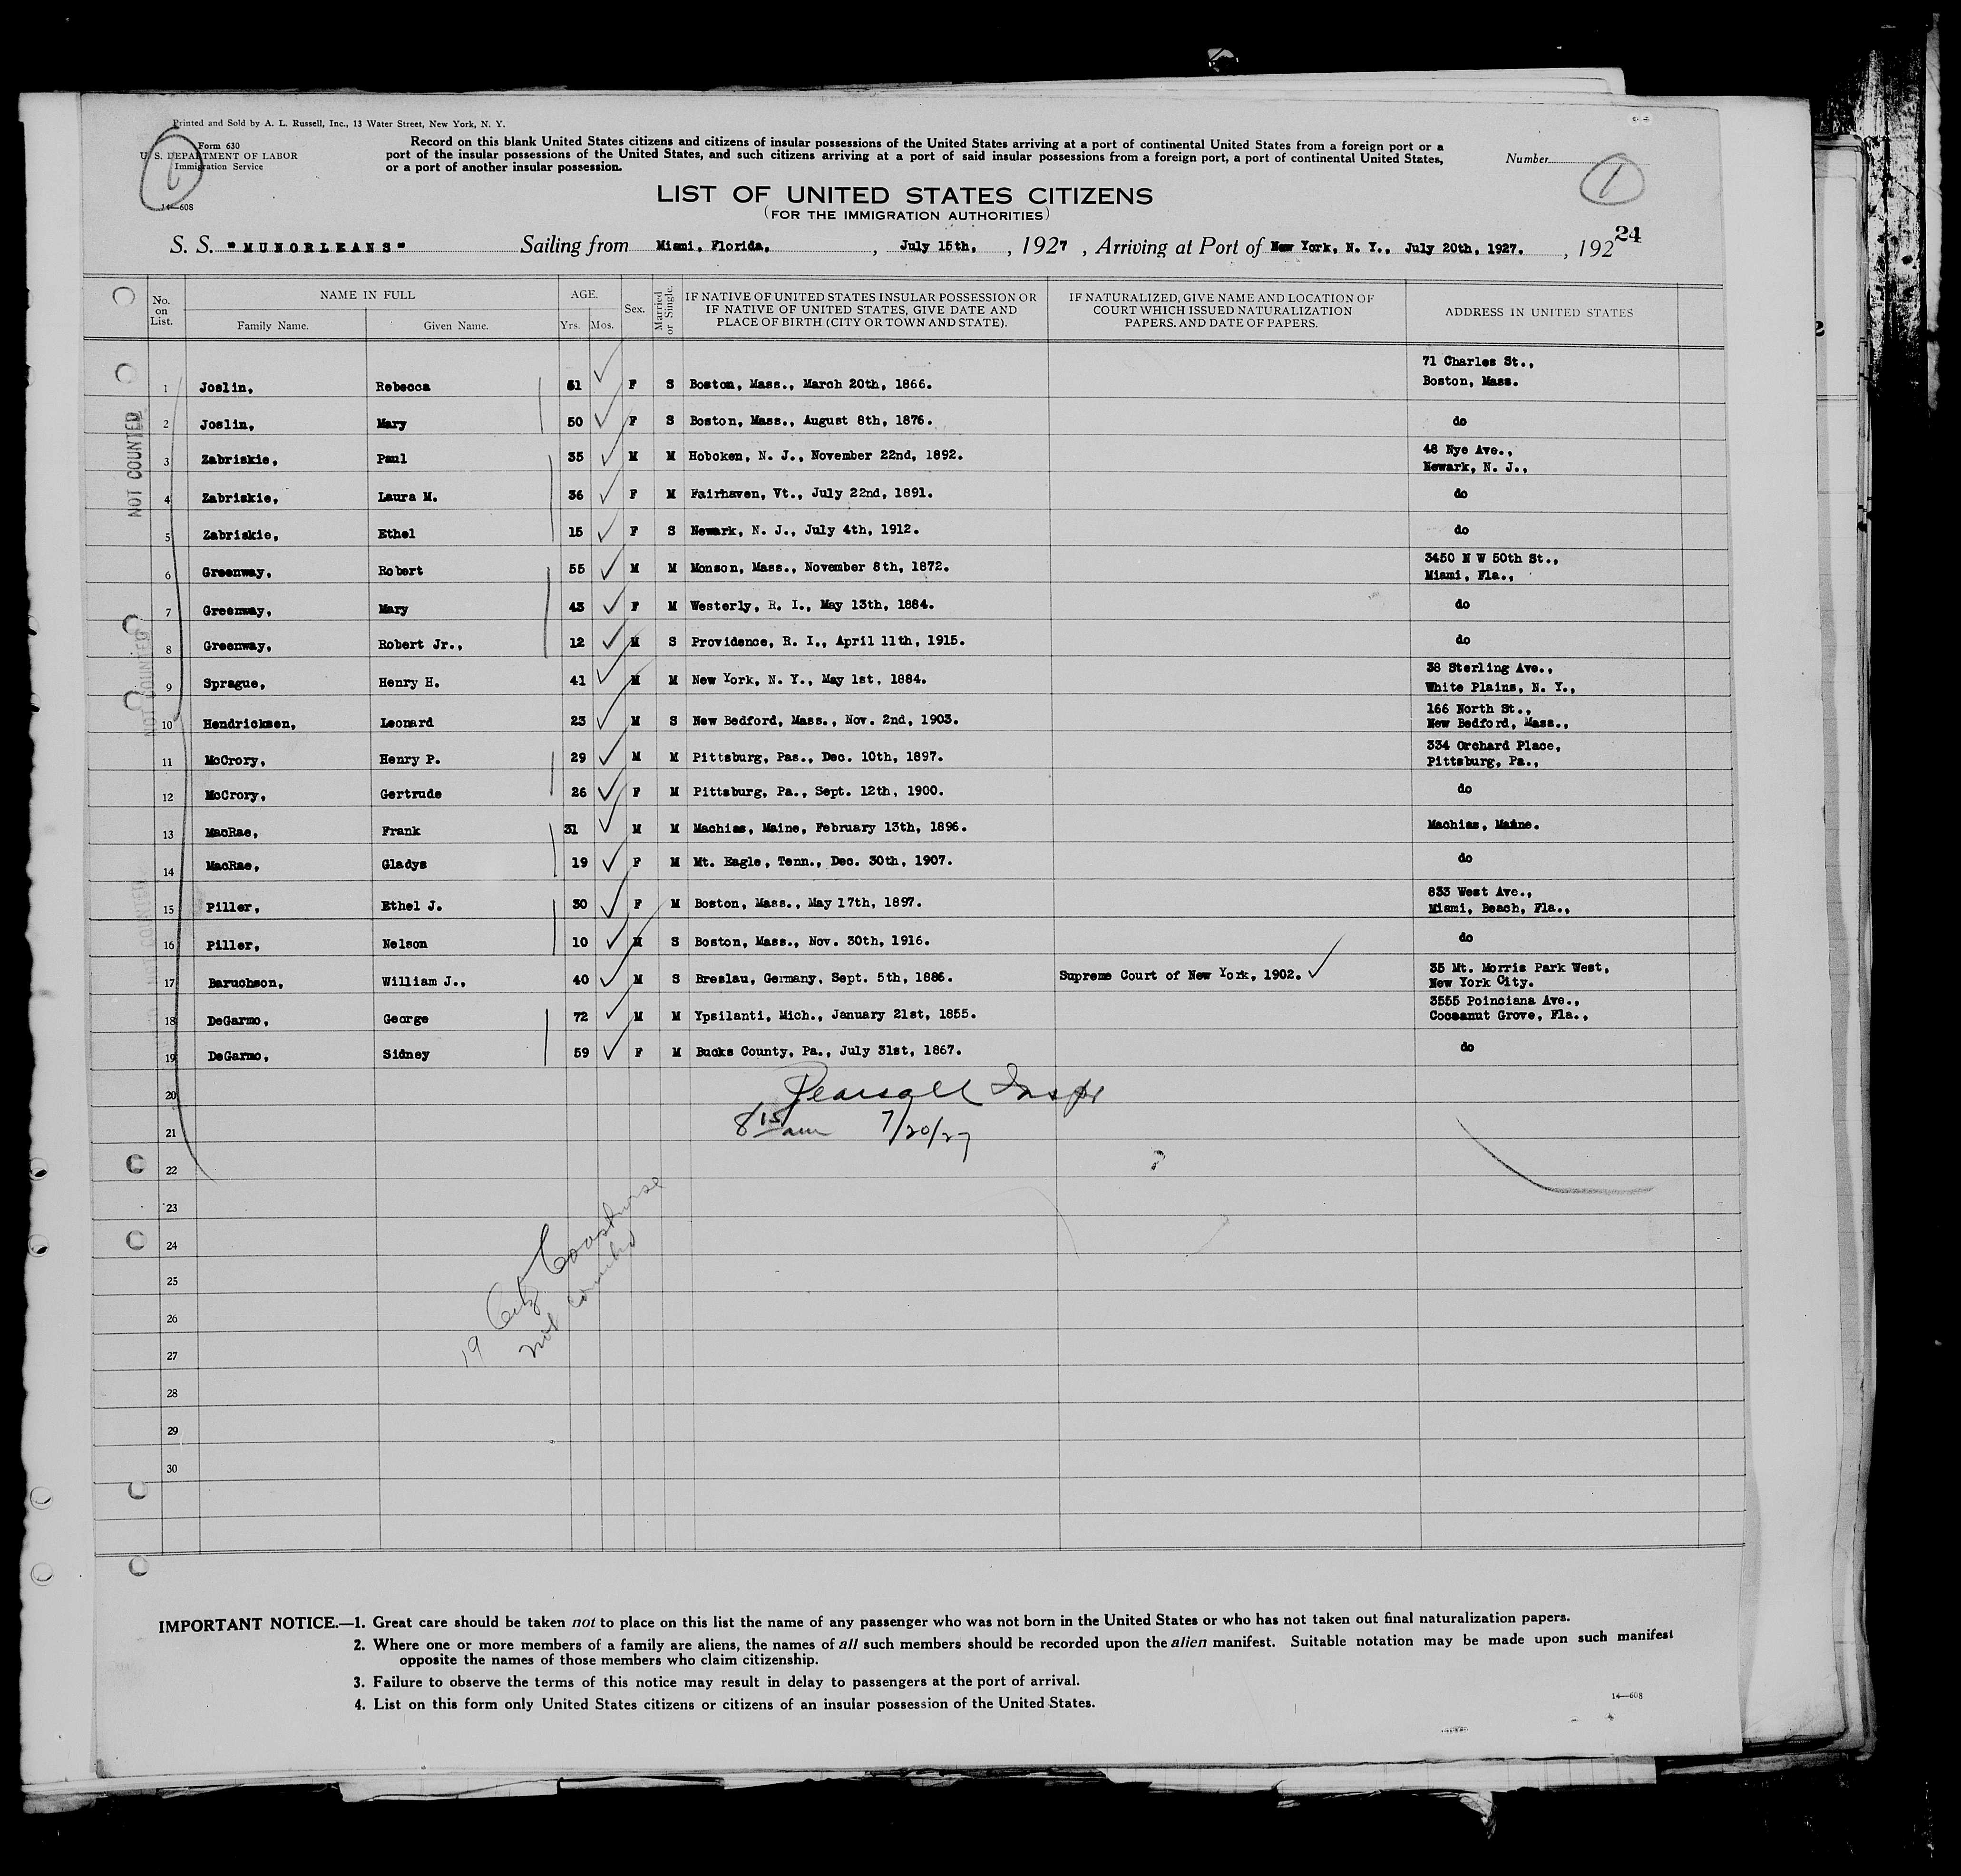 Printed and Sold by A. L. Russell, Inc., 13 Water Street, New York, N. Y.
Form 630
U. S. DEPARTMENT OF LABOR
Immigration Service
14—608
1
Record on this blank United States citizens and citizens of insular possessions of the United States arriving at a port of continental United States from a foreign port or a
port of the insular possessions of the United States, and such citizens arriving at a port of said insular possessions from a foreign port, a port of continental United States,
or a port of another insular possession.
Number
1
LIST OF UNITED STATES CITIZENS
(FOR THE IMMIGRATION AUTHORITIES)
24
S. S. "MUNORLEANS" Sailing from Miami, Florida, , July 15th, , 1927 , Arriving at Port of New York, N. Y., July 20th, 1927. , 192
No. on List. NAME IN FULL Family Name. Given Name. AGE. Yrs. Mos. Sex. Married or Single. IF NATIVE OF UNITED STATES INSULAR POSSESSION OR IF NATIVE OF UNITED STATES, GIVE DATE AND PLACE OF BIRTH (CITY OR TOWN AND STATE). IF NATURALIZED, GIVE NAME AND LOCATION OF COURT WHICH ISSUED NATURALIZATION PAPERS, AND DATE OF PAPERS. ADDRESS IN UNITED STATES
1 Joslin, Rebecca 61 F S Boston, Mass., March 20th, 1866. 71 Charles St., Boston, Mass.
2 Joslin, Mary 50 F S Boston, Mass., August 8th, 1876. do
3 Zabriskie, Paul 35 M M Hoboken, N. J., November 22nd, 1892. 48 Nye Ave., Newark, N. J.,
4 Zabriskie, Laura M. 36 F M Fairhaven, Vt., July 22nd, 1891. do
5 Zabriskie, Ethel 15 F S Newark, N. J., July 4th, 1912. do
6 Greenway, Robert 55 M M Monson, Mass., November 8th, 1872. 3450 N W 50th St., Miami, Fla.,
7 Greenway, Mary 43 F M Westerly, R. I., May 13th, 1884. do
8 Greenway, Robert Jr., 12 M S Providence, R. I., April 11th, 1915. do
9 Sprague, Henry H. 41 M M New York, N. Y., May 1st, 1884. 38 Sterling Ave., White Plains, N. Y.,
10 Hendricksen, Leonard 23 M S New Bedford, Mass., Nov. 2nd, 1903. 166 North St., New Bedford, Mass.,
11 McCrory, Henry P. 29 M M Pittsburg, Pas., Dec. 10th, 1897. 334 Orchard Place, Pittsburg, Pa.,
12 McCrory, Gertrude 26 F M Pittsburg, Pa., Sept. 12th, 1900. do
13 MacRae, Frank 31 M M Machias, Maine, February 13th, 1896. Machias, Maine.
14 MacRae, Gladys 19 F M Mt. Eagle, Tenn., Dec. 30th, 1907. do
15 Piller, Ethel J. 30 F M Boston, Mass., May 17th, 1897. 833 West Ave., Miami, Beach, Fla.,
16 Piller, Nelson 10 M S Boston, Mass., Nov. 30th, 1916. do
17 Baruchson, William J., 40 M S Breslau, Germany, Sept. 5th, 1886. Supreme Court of New York, 1902. 35 Mt. Morris Park West, New York City.
18 DeGarmo, George 72 M M Ypsilanti, Mich., January 21st, 1855. 3555 Poinciana Ave., Cocoanut Grove, Fla.,
19 DeGarmo, Sidney 59 F M Bucks County, Pa., July 31st, 1867. do
20 Pearsall Inspr
21 8 15 am 7/20/27
22
23
24
25
26
27
28
29
30
NOT COUNTED
NOT COUNTED
NOT COUNTED
19 Citz Coastwise
not counted
IMPORTANT NOTICE.—1. Great care should be taken not to place on this list the name of any passenger who was not born in the United States or who has not taken out final naturalization papers.
2. Where one or more members of a family are aliens, the names of all such members should be recorded upon the alien manifest. Suitable notation may be made upon such manifest
opposite the names of those members who claim citizenship.
3. Failure to observe the terms of this notice may result in delay to passengers at the port of arrival.
4. List on this form only United States citizens or citizens of an insular possession of the United States.
14—608